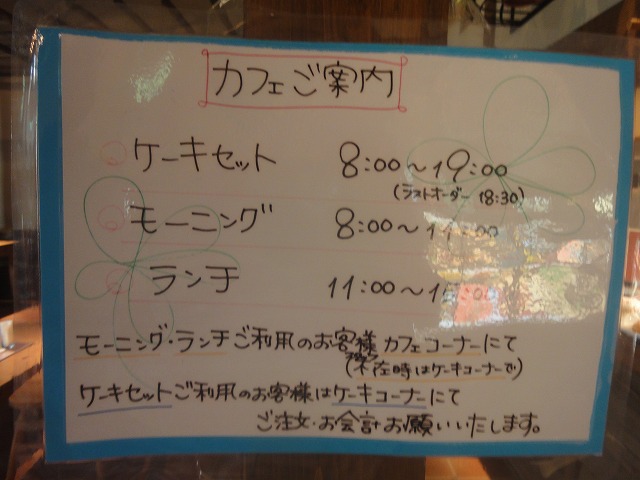 カフェご案内
ケーキセット 8:00〜19:00
(ラストオーダー 18:30)
モーニング 8:00〜11:00
ランチ 11:00〜
モーニング・ランチご利用のお客様カフェコーナーにて
(不在時はケーキコーナーで)
ケーキセットご利用のお客様はケーキコーナーにて
ご注文・お会計お願いいたします。